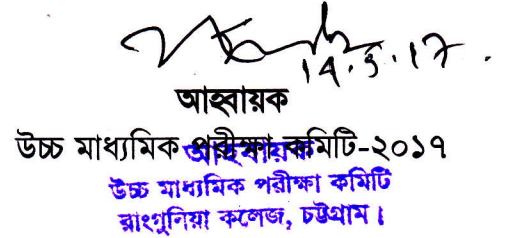 14.5.17.
আহবায়ক
উচ্চ মাধ্যমিক পরীক্ষা কমিটি-২০১৭
আহবায়ক
উচ্চ মাধ্যমিক পরীক্ষা কমিটি
রাংগুনিয়া কলেজ, চট্টগ্রাম।